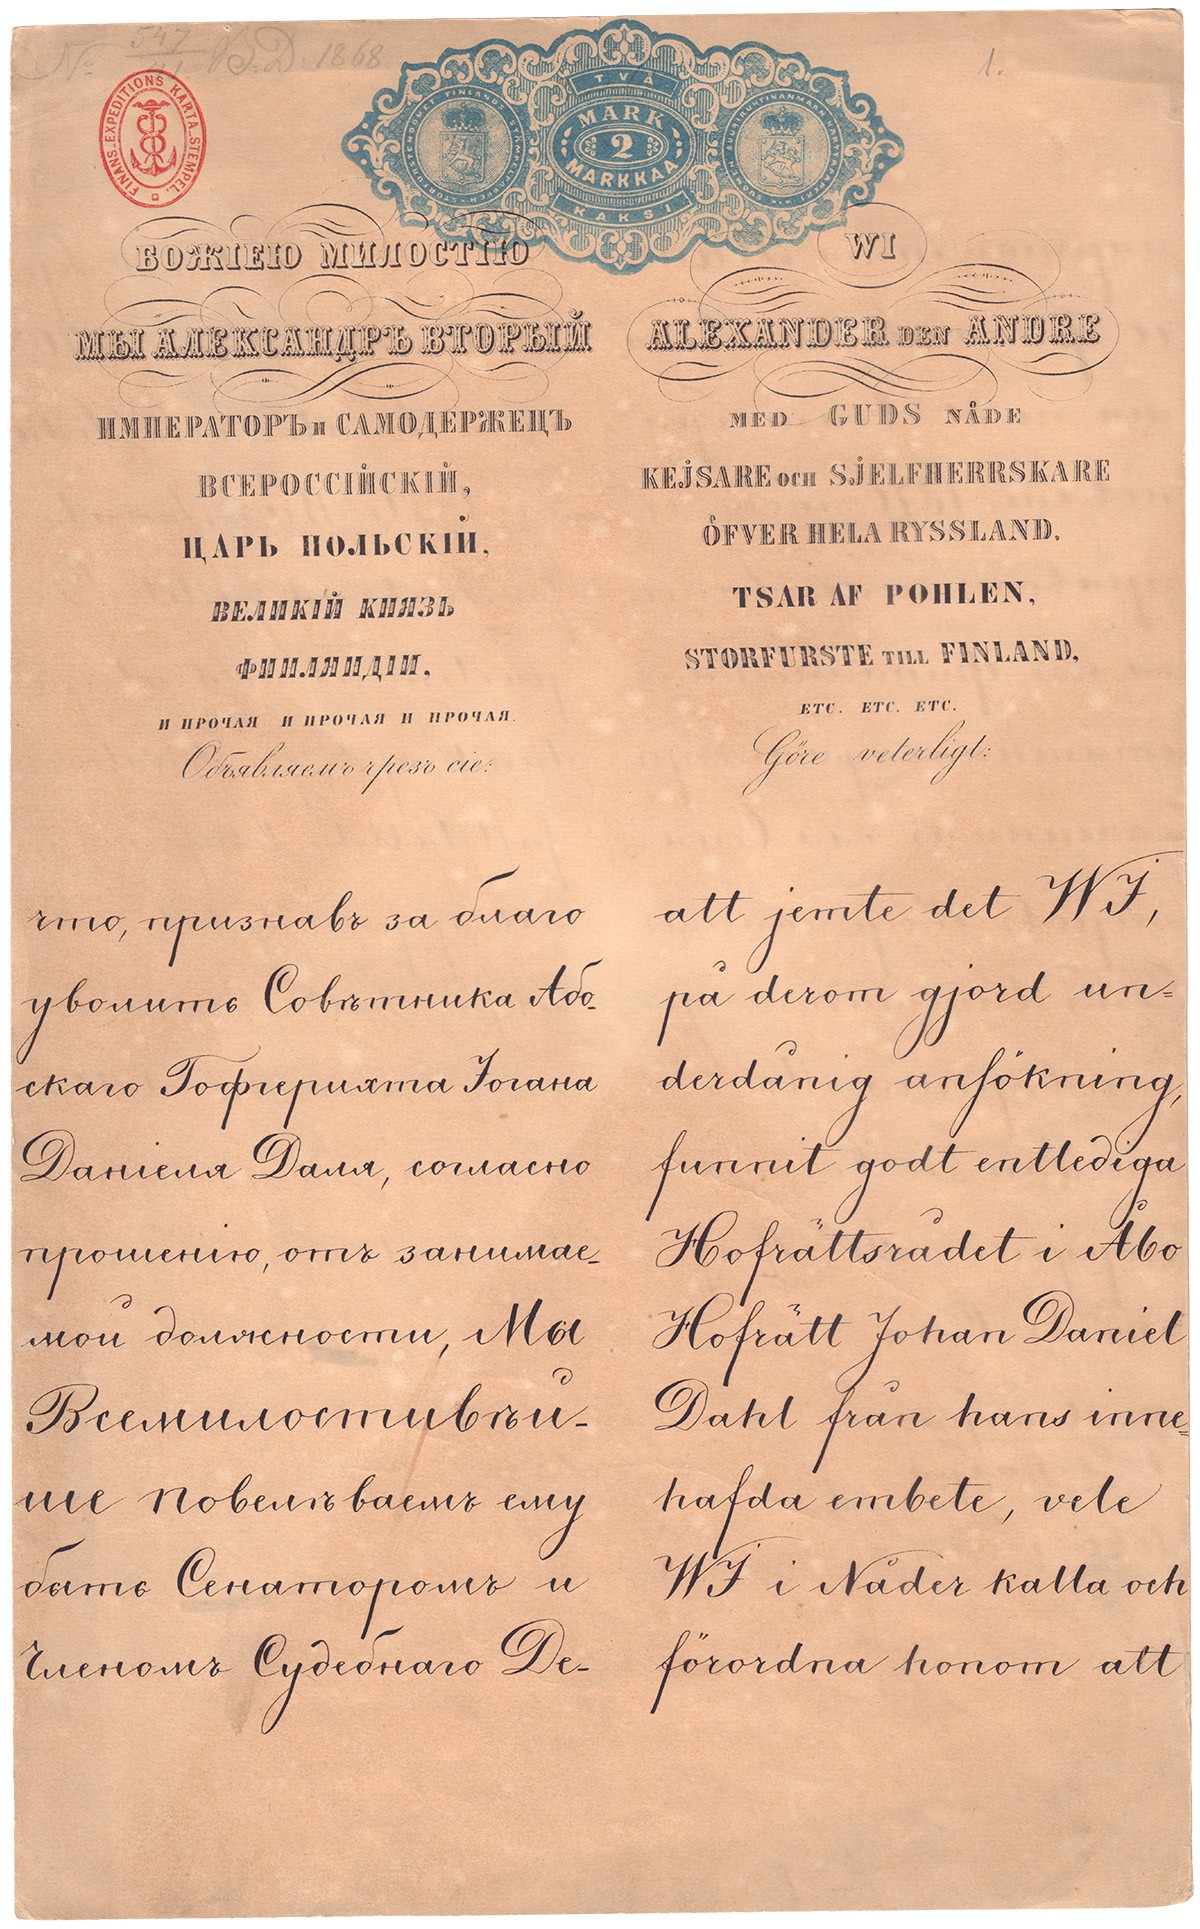 № 547 В.Д. 1868
1.
FINANS-EXPEDITIONS KARTA-STEMPEL
TVÅ
MARK
2
MARKKAA
KAKSI
БОЖІЕЮ МИЛОСТІЮ
МЫ АЛЕКСАНДРЪ ВТОРЫЙ
ИМПЕРАТОРЪ и САМОДЕРЖЕЦЪ
ВСЕРОССІЙСКІЙ,
ЦАРЬ ПОЛЬСКІЙ,
ВЕЛИКІЙ КНЯЗЬ
ФИНЛЯНДІИ,
И ПРОЧАЯ И ПРОЧАЯ И ПРОЧАЯ.
Объявляемъ чрезъ сіе:
что, признавъ за благо
уволить Совѣтника Або-
скаго Гофгерихта Іогана
Даніеля Даля, согласно
прошенію, отъ занимае-
мой должности, Мы
Всемилостивѣй-
ше повелѣваемъ ему
быть Сенаторомъ и
Членомъ Судебнаго Де-
WI
ALEXANDER DEN ANDRE
MED GUDS NÅDE
KEJSARE OCH SJELFHERRSKARE
ÖFVER HELA RYSSLAND,
TSAR AF POHLEN,
STORFURSTE TILL FINLAND,
ETC. ETC. ETC.
Göre veterligt:
att jemte det WJ,
på derom gjord un-
derdånig ansökning,
funnit godt entlediga
Hofrättsrådet i Åbo
Hofrätt Johan Daniel
Dahl från hans inne-
hafda embete, vele
WJ i Nåder kalla och
förordna honom att